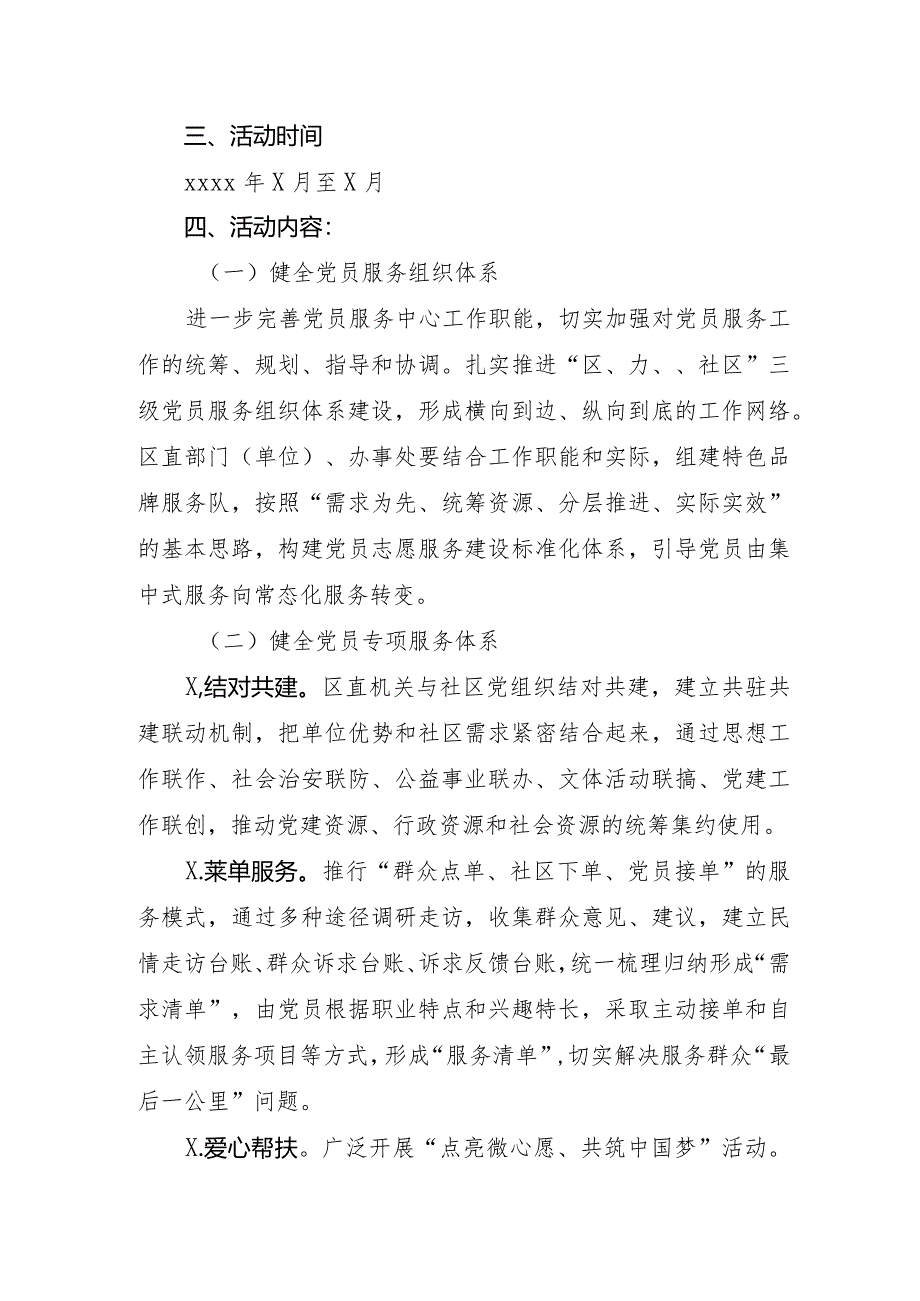 三、活动时间
xxxx 年 X 月至 X 月
四、活动内容：
（一）健全党员服务组织体系
进一步完善党员服务中心工作职能，切实加强对党员服务工
作的统筹、规划、指导和协调。扎实推进“区、力、、社区”三
级党员服务组织体系建设，形成横向到边、纵向到底的工作网络。
区直部门（单位）、办事处要结合工作职能和实际，组建特色品
牌服务队，按照“需求为先、统筹资源、分层推进、实际实效”
的基本思路，构建党员志愿服务建设标准化体系，引导党员由集
中式服务向常态化服务转变。
（二）健全党员专项服务体系
X,结对共建。区直机关与社区党组织结对共建，建立共驻共
建联动机制，把单位优势和社区需求紧密结合起来，通过思想工
作联作、社会治安联防、公益事业联办、文体活动联搞、党建工
作联创，推动党建资源、行政资源和社会资源的统筹集约使用。
X.莱单服务。推行“群众点单、社区下单、党员接单”的服
务模式，通过多种途径调研走访，收集群众意见、建议，建立民
情走访台账、群众诉求台账、诉求反馈台账，统一梳理归纳形成“需
求清单”，由党员根据职业特点和兴趣特长，采取主动接单和自
主认领服务项目等方式，形成“服务清单”,切实解决服务群众“最
后一公里”问题。
X.爱心帮扶。广泛开展“点亮微心愿、共筑中国梦”活动。